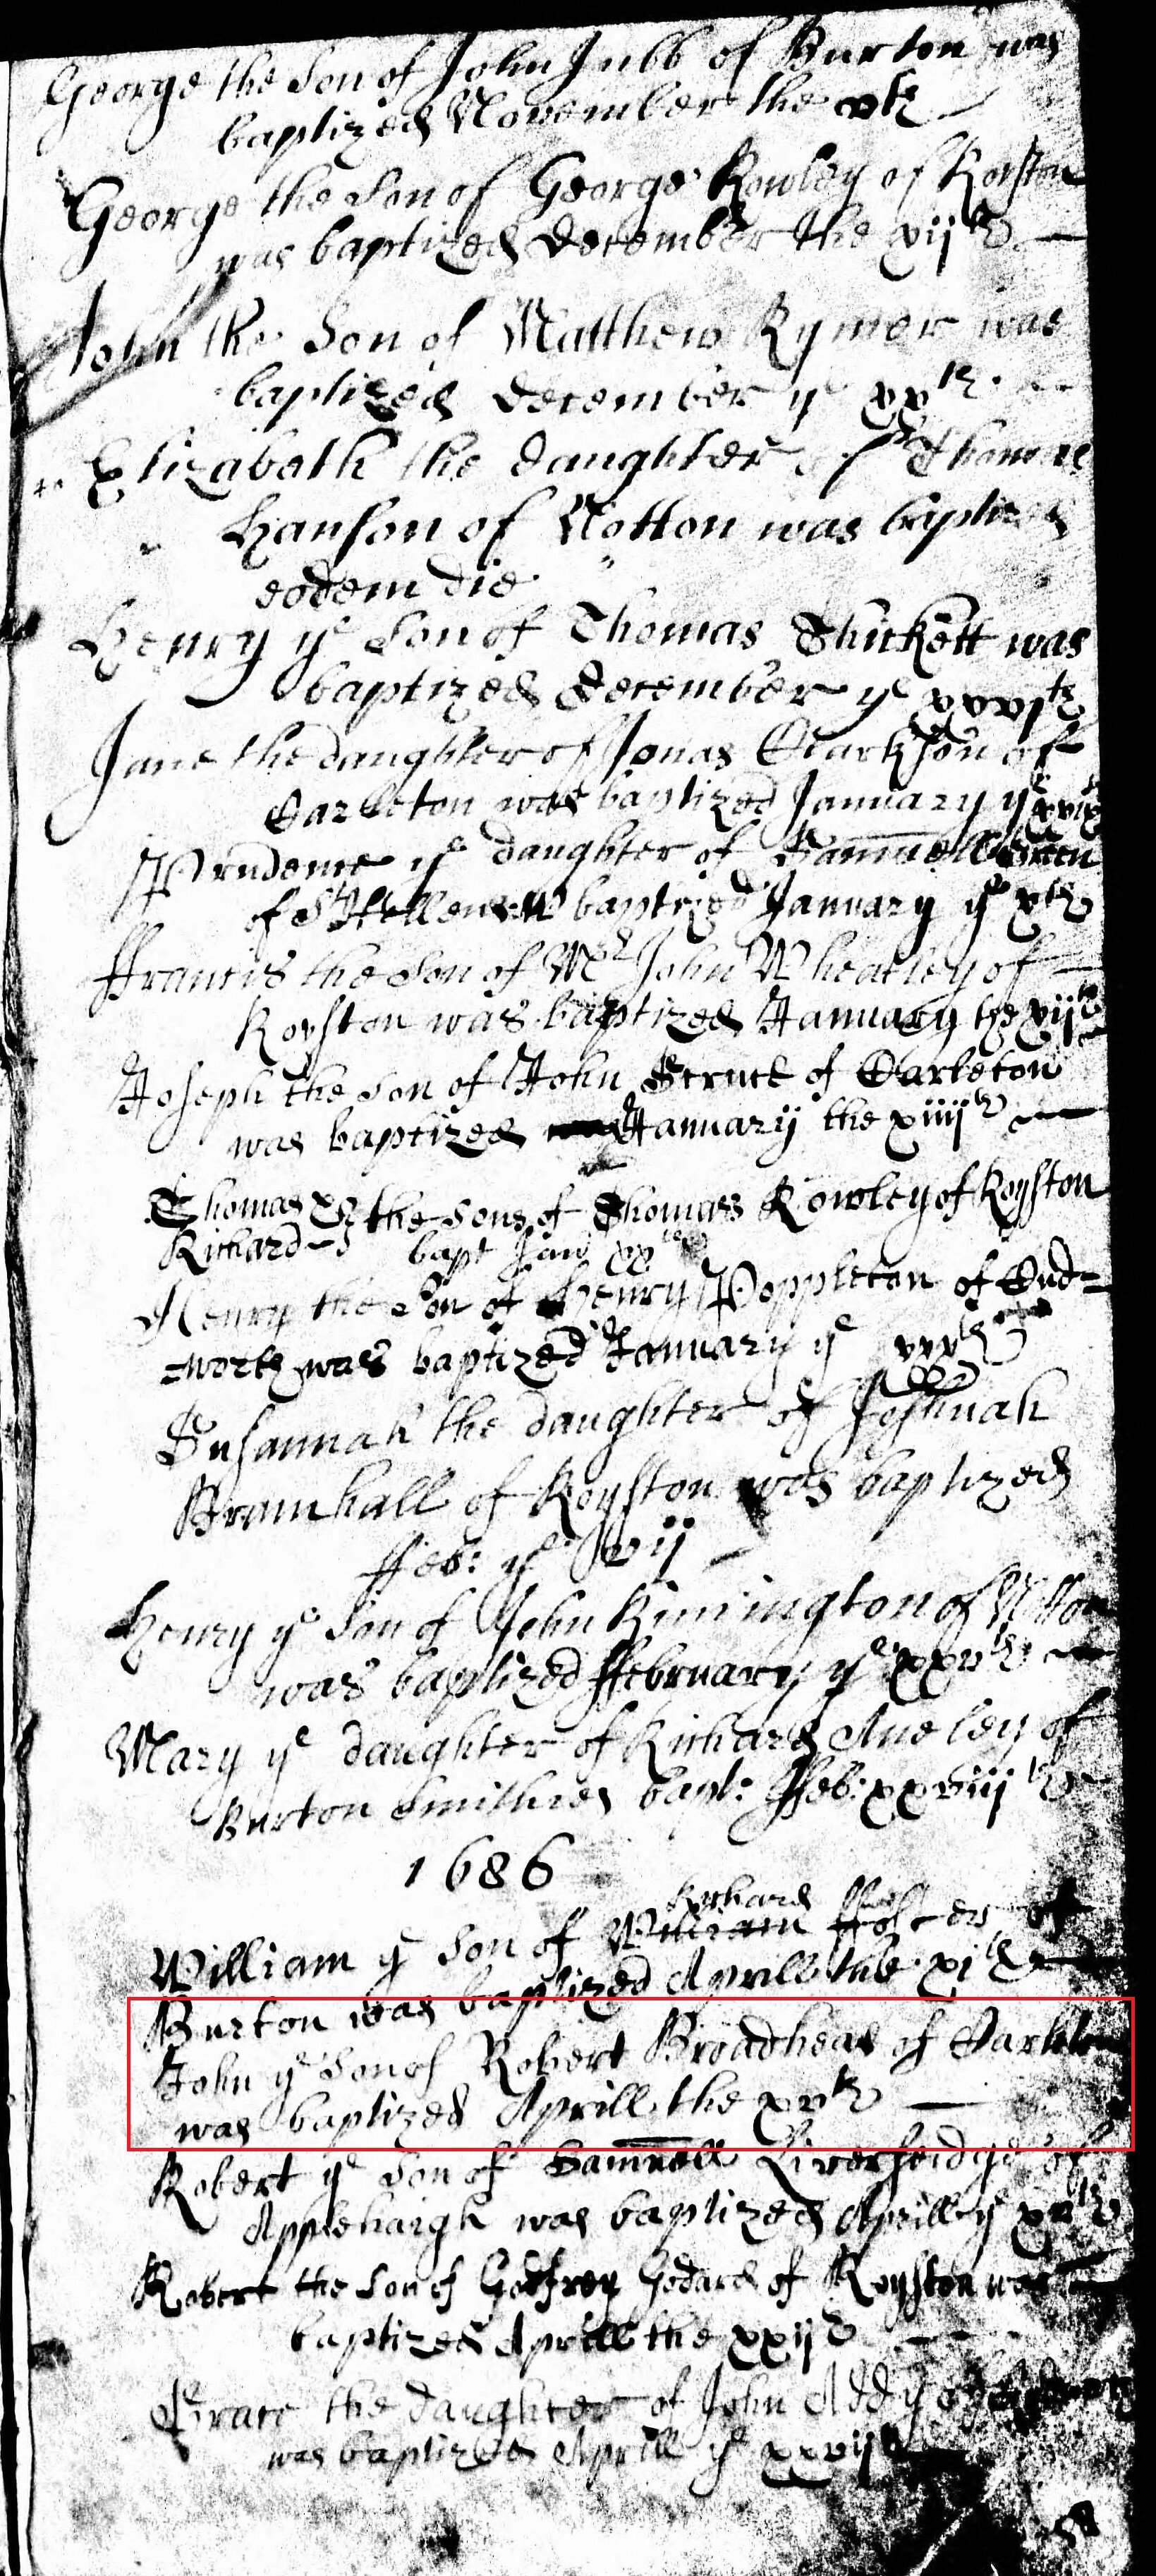 George the Son of John Jubb of Burton was
baptized November the xth
George the Son of George Rowley of Royston
was baptized December the xijth
John the Son of Matthew Rymer was
baptized December ye xxth
Elizabeth the daughter of Thomas
Hanson of Notton was baptized
eodem die
Henry ye Son of Thomas Thickett was
baptized December ye
Jane the daughter of Jonas Clarkson of
Carleton was baptized January ye
Prudence ye daughter of Samuell Green
of St Hellens W baptized January ye xth
Francis the Son of Mr John Wheatley of
Royston was baptized January the xijth
Joseph the Son of John of Carleton
was baptized January the xiiijth
Thomas & the Sons of Thomas Rowley of Royston
Richard bapt Jan xxth
Henry the Son of Henry Poppleton of Cud=
=worth was baptized January ye xxxth
Susannah the daughter of Joshuah
Bramhall of Royston was baptized
ffeb: ye vij
Henry ye Son of John Rimington of Notton
was baptized ffebruary ye xxvth
Mary ye daughter of Richard Aveley of
Burton Smithies bapt: ffeb: xxviijth
1686
Richard
William ye Son of William ffoster of
Burton was baptized Aprill the xith
John ye Son of Robert Broadhead of Carleton
was baptized Aprill the xvth
Robert ye Son of Samuell Liversedge of
Applehaigh was baptized Aprill ye xvth
Robert the Son of Godfrey Godard of Royston was
baptized Aprill the xxijth
Grace the daughter of John Addy of
was baptized Aprill ye xxvijth